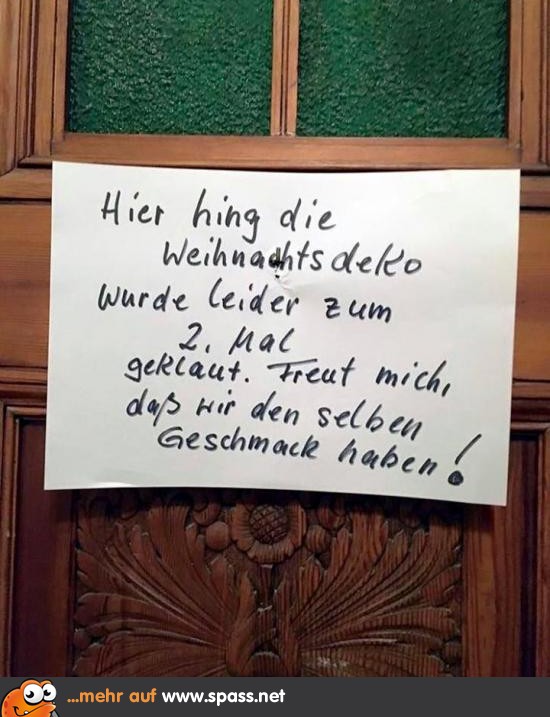 Hier hing die
Weihnachtsdeko
wurde leider zum
2. Mal
geklaut. Freut mich,
daß wir den selben
Geschmack haben!
...mehr auf www.spass.net